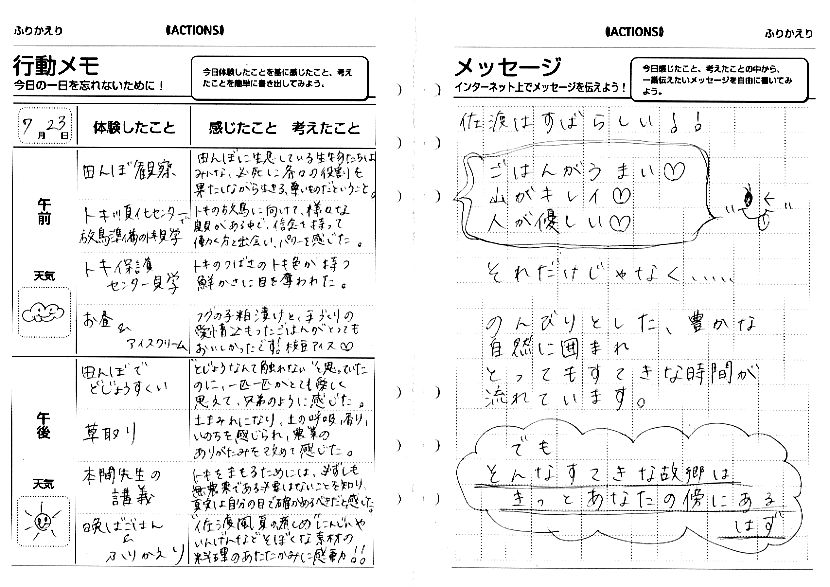 ふりかえり
《ACTIONS》
行動メモ
今日の一日を忘れないために！
今日体験したことを基に感じたこと、考え
たことを簡単に書き出してみよう。
7月23日
体験したこと
感じたこと 考えたこと
午前
天気
田んぼ観察
田んぼに生息している生き物たちは
みんな、必死に各々の役割を
果たしながら生きる、尊いものだということ。
トキ順化センター、
放鳥準備の見学
トキの放鳥に向けて、様々な
ある中で、信念を持って
働く方と出会い、パワーを感じた。
トキ保護
センター見学
トキのつばさのトキ色が持つ
鮮かさに目を奪われた。
お昼
&
アイスクリーム
フグの子粕漬けと、手づくりの
愛情こもったごはんがとっても
おいしかったです!枝豆アイス♡
午後
天気
田んぼで
どじょうすくい
"どじょうなんて触れない"と思っていた
のに、一匹一匹がとても愛しく
思えて、兄弟のように感じた。
草取り
土まみれになり、土の呼吸、香り、
いのちを感じられ、農業の
ありがたみを改めて感じた。
本間先生の
講義
トキをまもるためには、必ずしも
無農薬である必要はないことを知り、
真実は自分の目で確かめるべきだと感じた。
晩ごはん
&
ふりかえり
"佐渡風夏の煮しめ"にんじんや
いんげんなどそぼくな素材の
料理のあたたかみに感動!!
《ACTIONS》
ふりかえり
メッセージ
インターネット上でメッセージを伝えよう！
今日感じたこと、考えたことの中から、
一番伝えたいメッセージを自由に書いてみ
よう。
佐渡はすばらしい!!
ごはんがうまい♡
山がキレイ♡
人が優しい♡
それだけじゃなく.....
のんびりとした、豊かな
自然に囲まれ
とってもすてきな時間が
流れています。
でも
そんなすてきな故郷は
きっとあなたの傍にある
はず